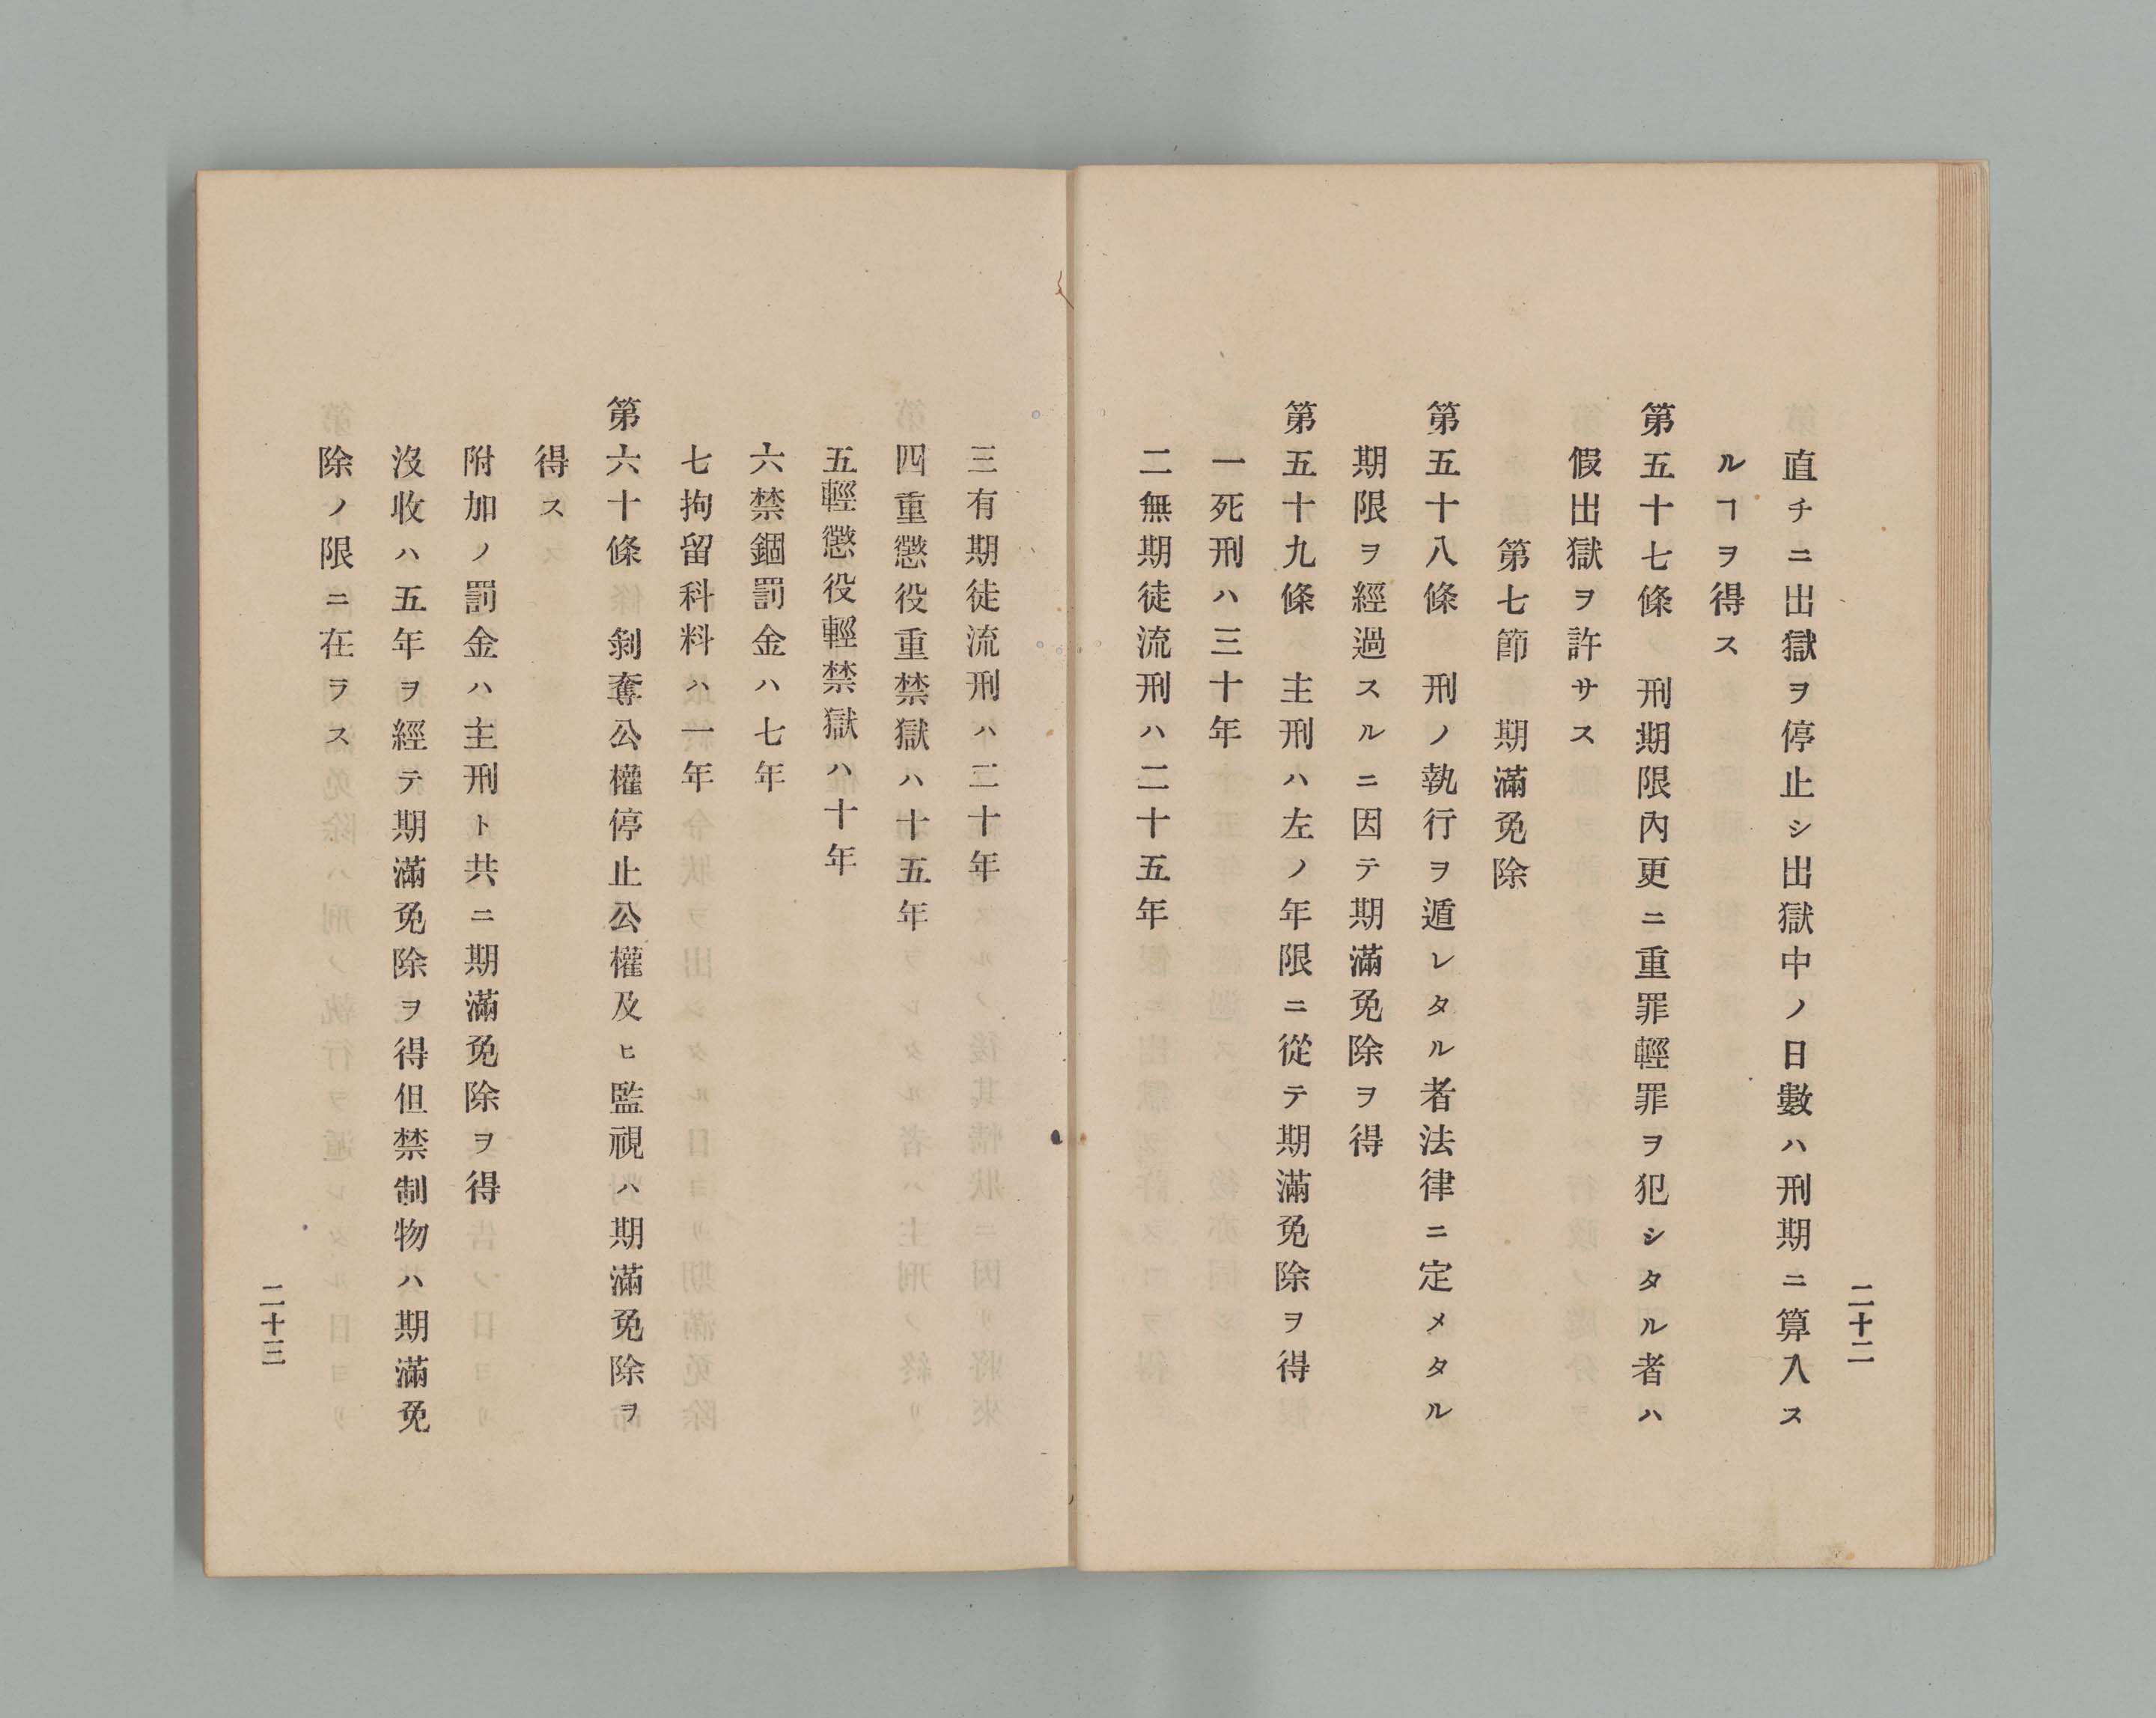 二十二
直チニ出獄ヲ停止シ出獄中ノ日數ハ刑期ニ算入ス
ルヿヲ得ス
第五十七條　刑期限內更ニ重罪輕罪ヲ犯シタル者ハ
假出獄ヲ許サス
第七節　期滿免除
第五十八條　刑ノ執行ヲ遁レタル者法律ニ定メタル
期限ヲ經過スルニ因テ期滿免除ヲ得
第五十九條　主刑ハ左ノ年限ニ從テ期滿免除ヲ得
一死刑ハ三十年
二無期徒流刑ハ二十五年
三有期徒流刑ハ二十年
四重懲役重禁獄ハ十五年
五輕懲役輕禁獄ハ十年
六禁錮罰金ハ七年
七拘留科料ハ一年
第六十條　剝奪公權停止公權及ヒ監視ハ期滿免除ヲ
得ス
附加ノ罰金ハ主刑ト共ニ期滿免除ヲ得
沒收ハ五年ヲ經テ期滿免除ヲ得但禁制物ハ期滿免
除ノ限ニ在ラス
二十三